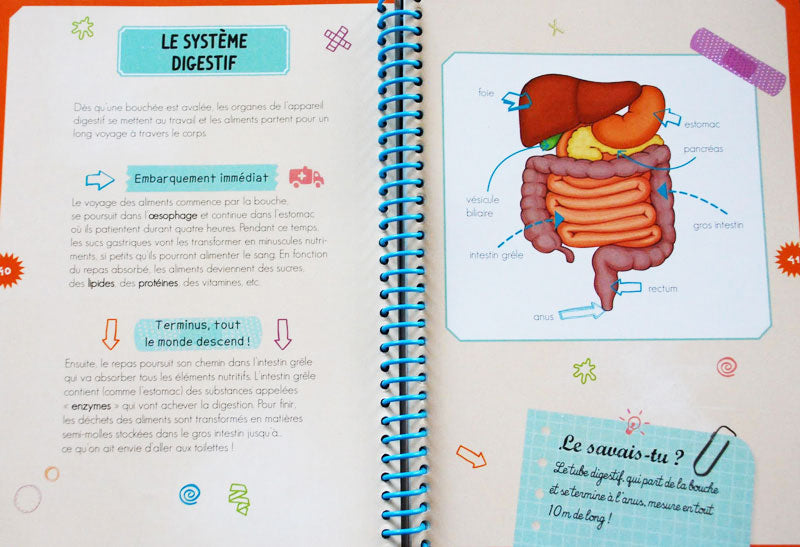 LE SYSTÈME
DIGESTIF
Dès qu'une bouchée est avalée, les organes de l'appareil
digestif se mettent au travail et les aliments partent pour un
long voyage à travers le corps.
Embarquement immédiat
Le voyage des aliments commence par la bouche,
se poursuit dans l'œsophage et continue dans l'estomac
où ils patientent durant quatre heures. Pendant ce temps,
les sucs gastriques vont les transformer en minuscules nutri-
ments, si petits qu'ils pourront alimenter le sang. En fonction
du repas absorbé, les aliments deviennent des sucres,
des lipides, des protéines, des vitamines, etc.
40
Terminus, tout
le monde descend !
Ensuite, le repas poursuit son chemin dans l'intestin grêle
qui va absorber tous les éléments nutritifs. L'intestin grêle
contient (comme l'estomac) des substances appelées
« enzymes » qui vont achever la digestion. Pour finir,
les déchets des aliments sont transformés en matières
semi-molles stockées dans le gros intestin jusqu'à...
ce qu'on ait envie d'aller aux toilettes !
foie
estomac
pancréas
vésicule
biliaire
gros intestin
intestin grêle
rectum
anus
41
Le savais-tu ?
Le tube digestif, qui part de la bouche
et se termine à l'anus, mesure en tout
10 m de long !